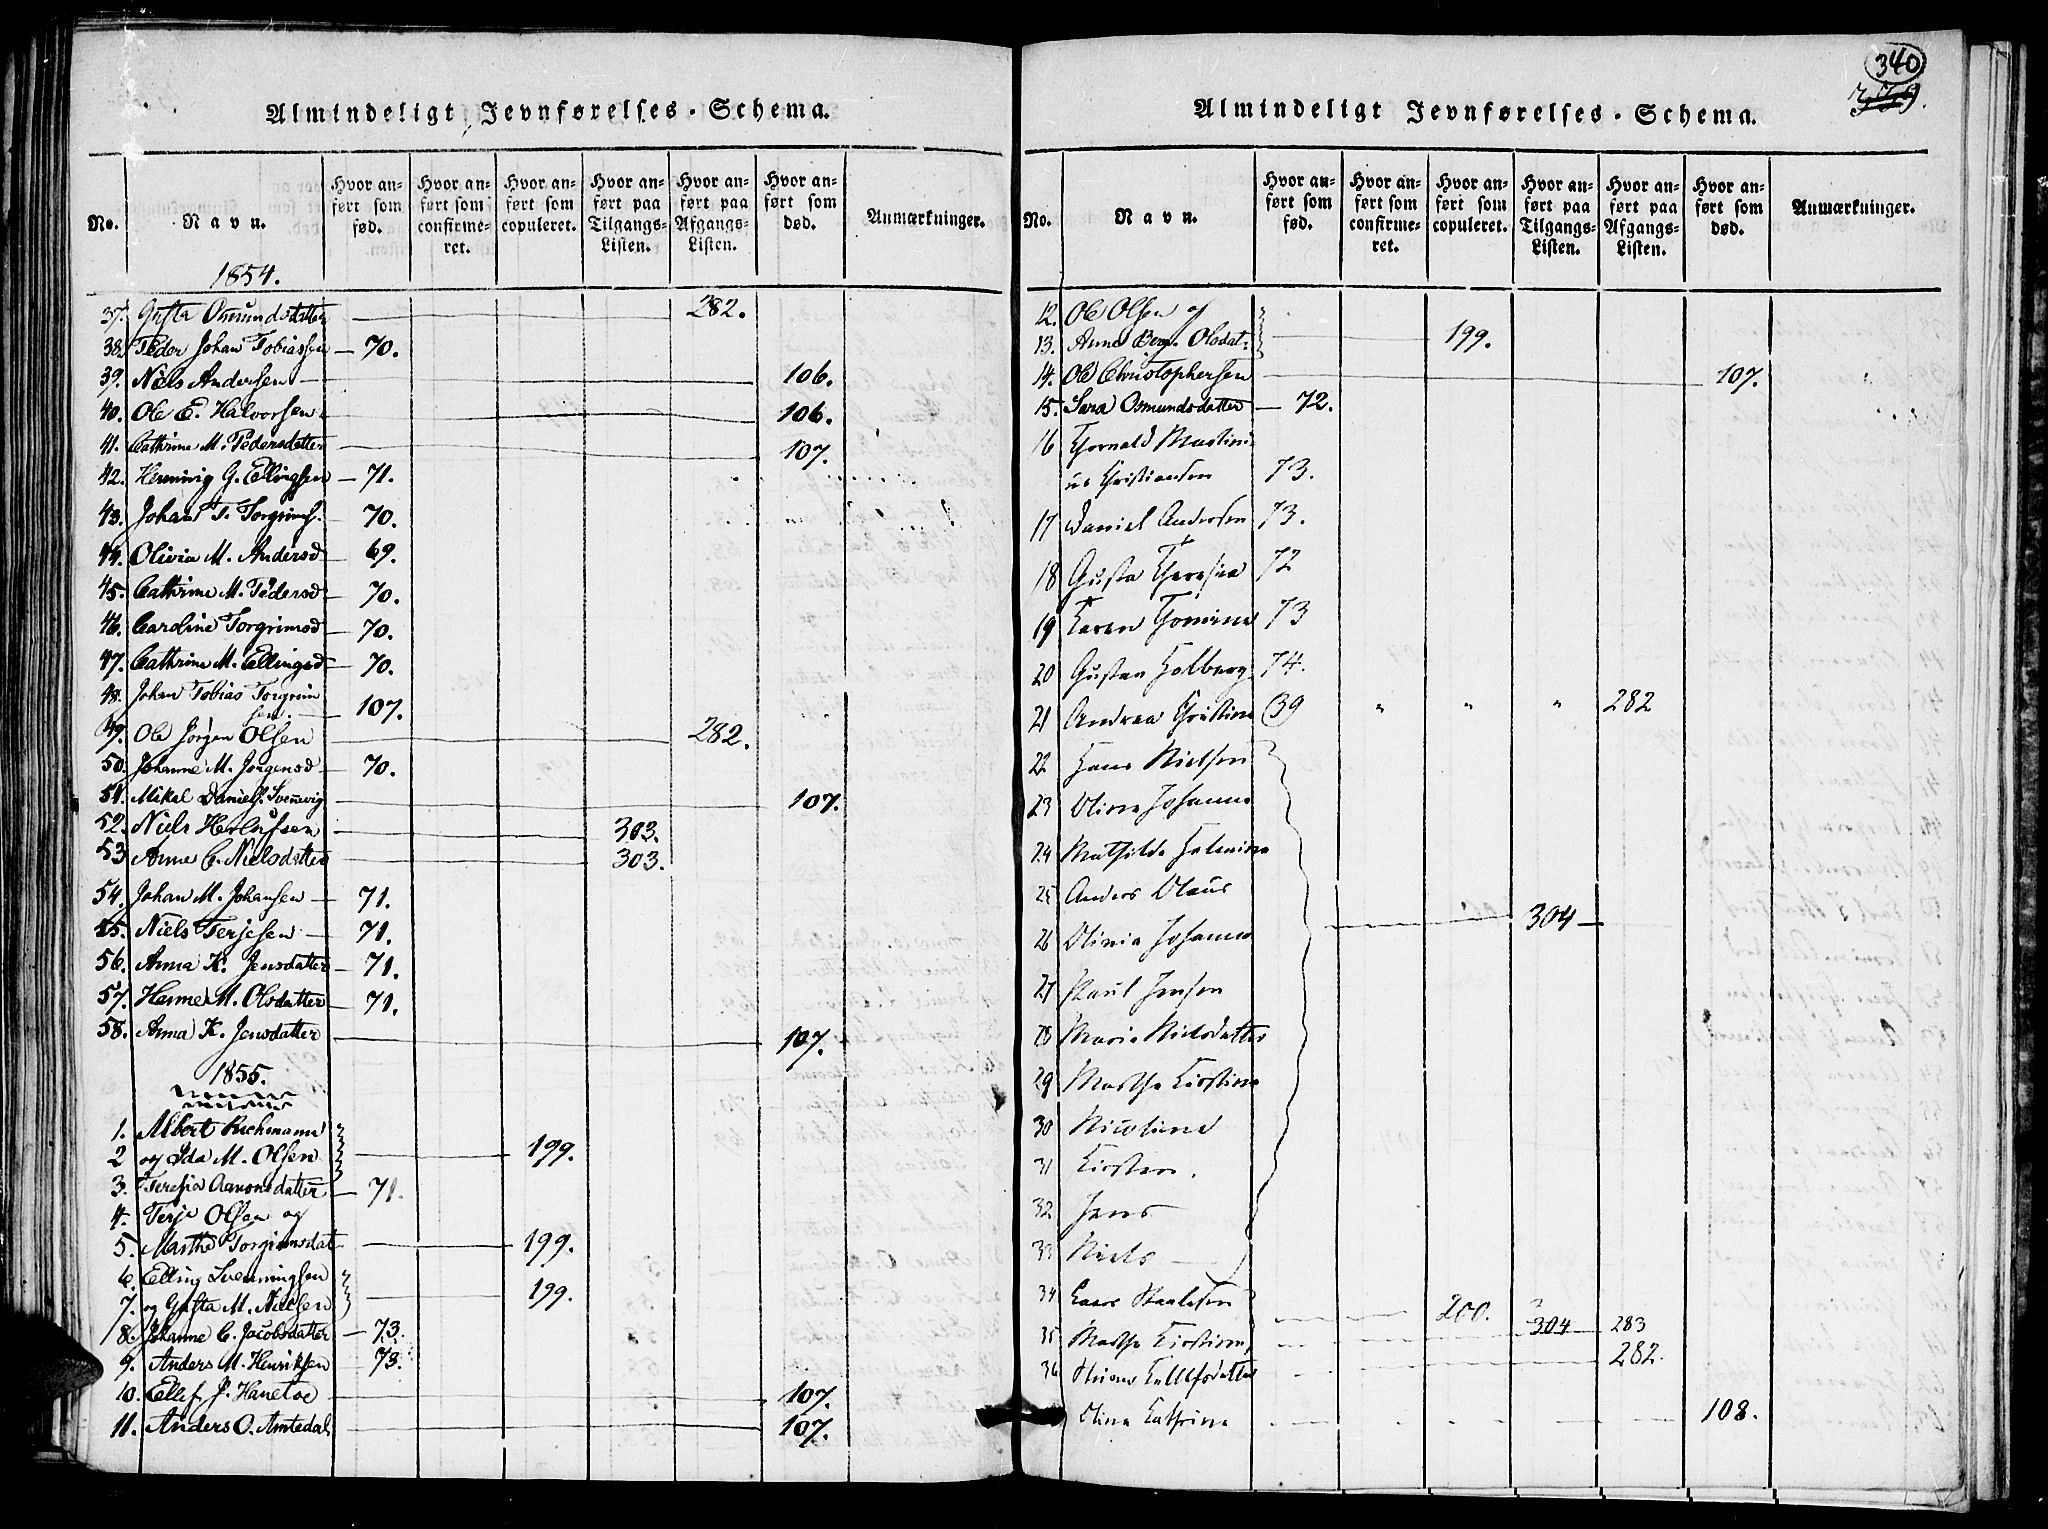 Almindeligt Jevnførelses-Schema.
No. Navn. Hvor anført som fød. Hvor anført som confirmeret. Hvor anført som copuleret. Hvor anført paa Tilgangs-Listen. Hvor anført paa Afgangs-Listen. Hvor anført som død. Anmærkninger.
1854.
37. Gusta Osmundsdatter 282.
38. Peder Johan Tobiassen 70.
39. Niels Andersen 106.
40. Ole E. Halvorsen 106.
41. Cathrine M. Pedersdatter 107.
42. Henning G. Ellingsen 71.
43. Johan T. Torgrims. 70.
44. Olivia M. Andersd 69.
45. Cathrine M. Pedersd 70.
46. Caroline Torgrimsd 70.
47. Cathrine M. Ellingsd 70.
48. Johan Tobias Torgrim
sen. 107.
49. Ole Jørgen Olsen 282.
50. Johanne M. Jørgensd 70.
51. Mikal Daniels. Svennevig 107.
52. Niels Herlufsen 303.
53 Anne C. Nielsdatter 303.
54. Johan M. Johansen 71.
55. Niels Terjesen 71.
56. Anna K. Jensdatter 71.
57. Hanne M. Olsdatter 71.
58. Anna K. Jensdatter 107.
1855.
1. Albert
2 og Ida M. Olsen 199.
3. Teresia Aanonsdatter 71.
4. Terje Olsen og
5. Marthe Torgrimsdat 199.
6. Elling Svenningsen
7. og Gusta M. Nielsen 199.
8. Johanne C. Jacobsdatter 73.
9. Anders M. Henriksen 73.
10. Ellef J. Hanetoe 107.
11. Anders O. Amtedal 107.
340
Almindeligt Jevnførelses-Schema.
No. Navn. Hvor anført som fød. Hvor anført som confirmeret. Hvor anført som copuleret. Hvor anført paa Tilgangs-Listen. Hvor anført paa Afgangs-Listen. Hvor anført som død. Anmærkninger.
12. Ole Olsen og
13. Anne Berg. Olsdat. 199.
14. Ole Christophersen 107.
15. Sara Osmundsdatter 72.
16 Thorvald Martini
us Christiansen 73.
17 Daniel Andersen 73.
18 Gusta Theresia 72
19 Karen Tomine 73
20 Gustav Holberg 74.
21 Andrea Christine (39 " " " 282
22 Hans Nielsen
23 Oline Johanne
24 Mathilde
25 Anders Olaus
26 Olivia Johanne 304
27 Paul Jensen
28 Marie Nielsdatter
29 Marthe Kirstine
30 Nicoline
31 Kirsten.
32 Jens
33 Niels
34 Lars 200. 304 283
35 Marthe Kirstine
36 282.
Oline Cathrine 108.